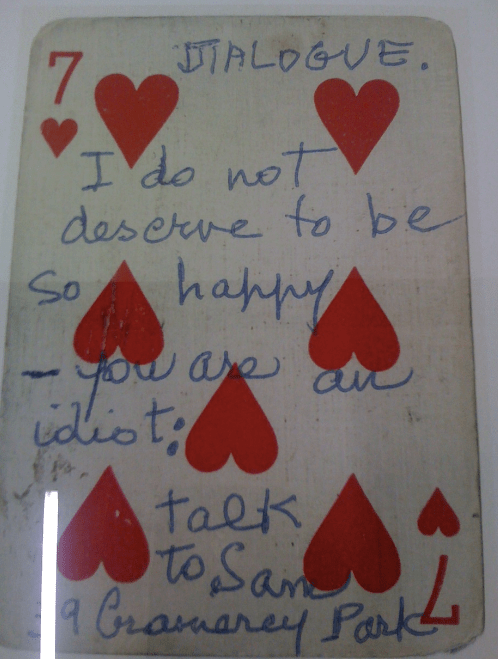 7
DIALOGUE.
I do not
deserve to be
so happy
- you are an
idiot:
talk
to Sam
39 Gramercy Park
7